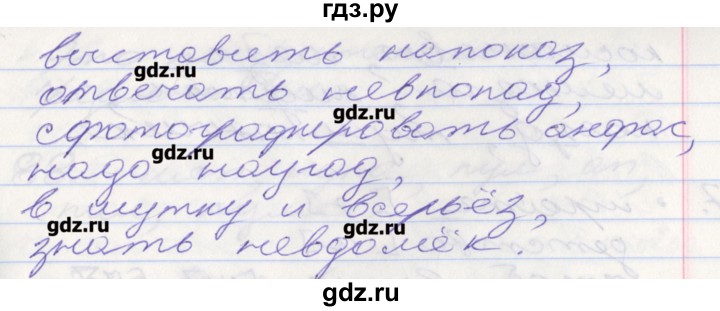 гдз.ру
выставить напоказ,
gdz.ru
отвечать невпопад,
gdz.ru
сфотографировать анфас,
gdz.ru
надо наугад,
в шутку и всерьёз,
gdz.ru
gdz.ru
знать невдомёк.
gdz.ru